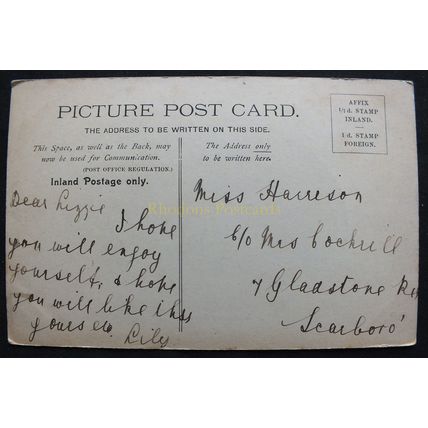 PICTURE POST CARD.
THE ADDRESS TO BE WRITTEN ON THIS SIDE.
AFFIX
½d. STAMP
INLAND.
1d. STAMP
FOREIGN.
This Space, as well as the Back, may
now be used for Communication.
(POST OFFICE REGULATION.)
Inland Postage only.
The Address only
to be written here.
Dear Lizzie
I hope
you will enjoy
yourself, & hope
you will like this
yours etc.
Lily
Miss Harrison
C/O Mrs Cockrill
7 Gladstone
Scarboro'
Rhodons Postcards